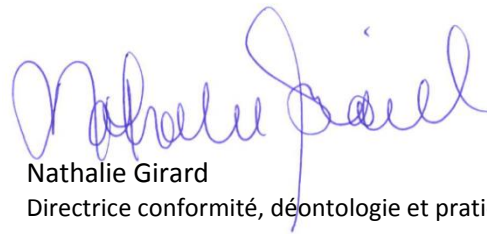 Nathalie Girard
Nathalie Girard
Directrice conformité, déontologie et prati